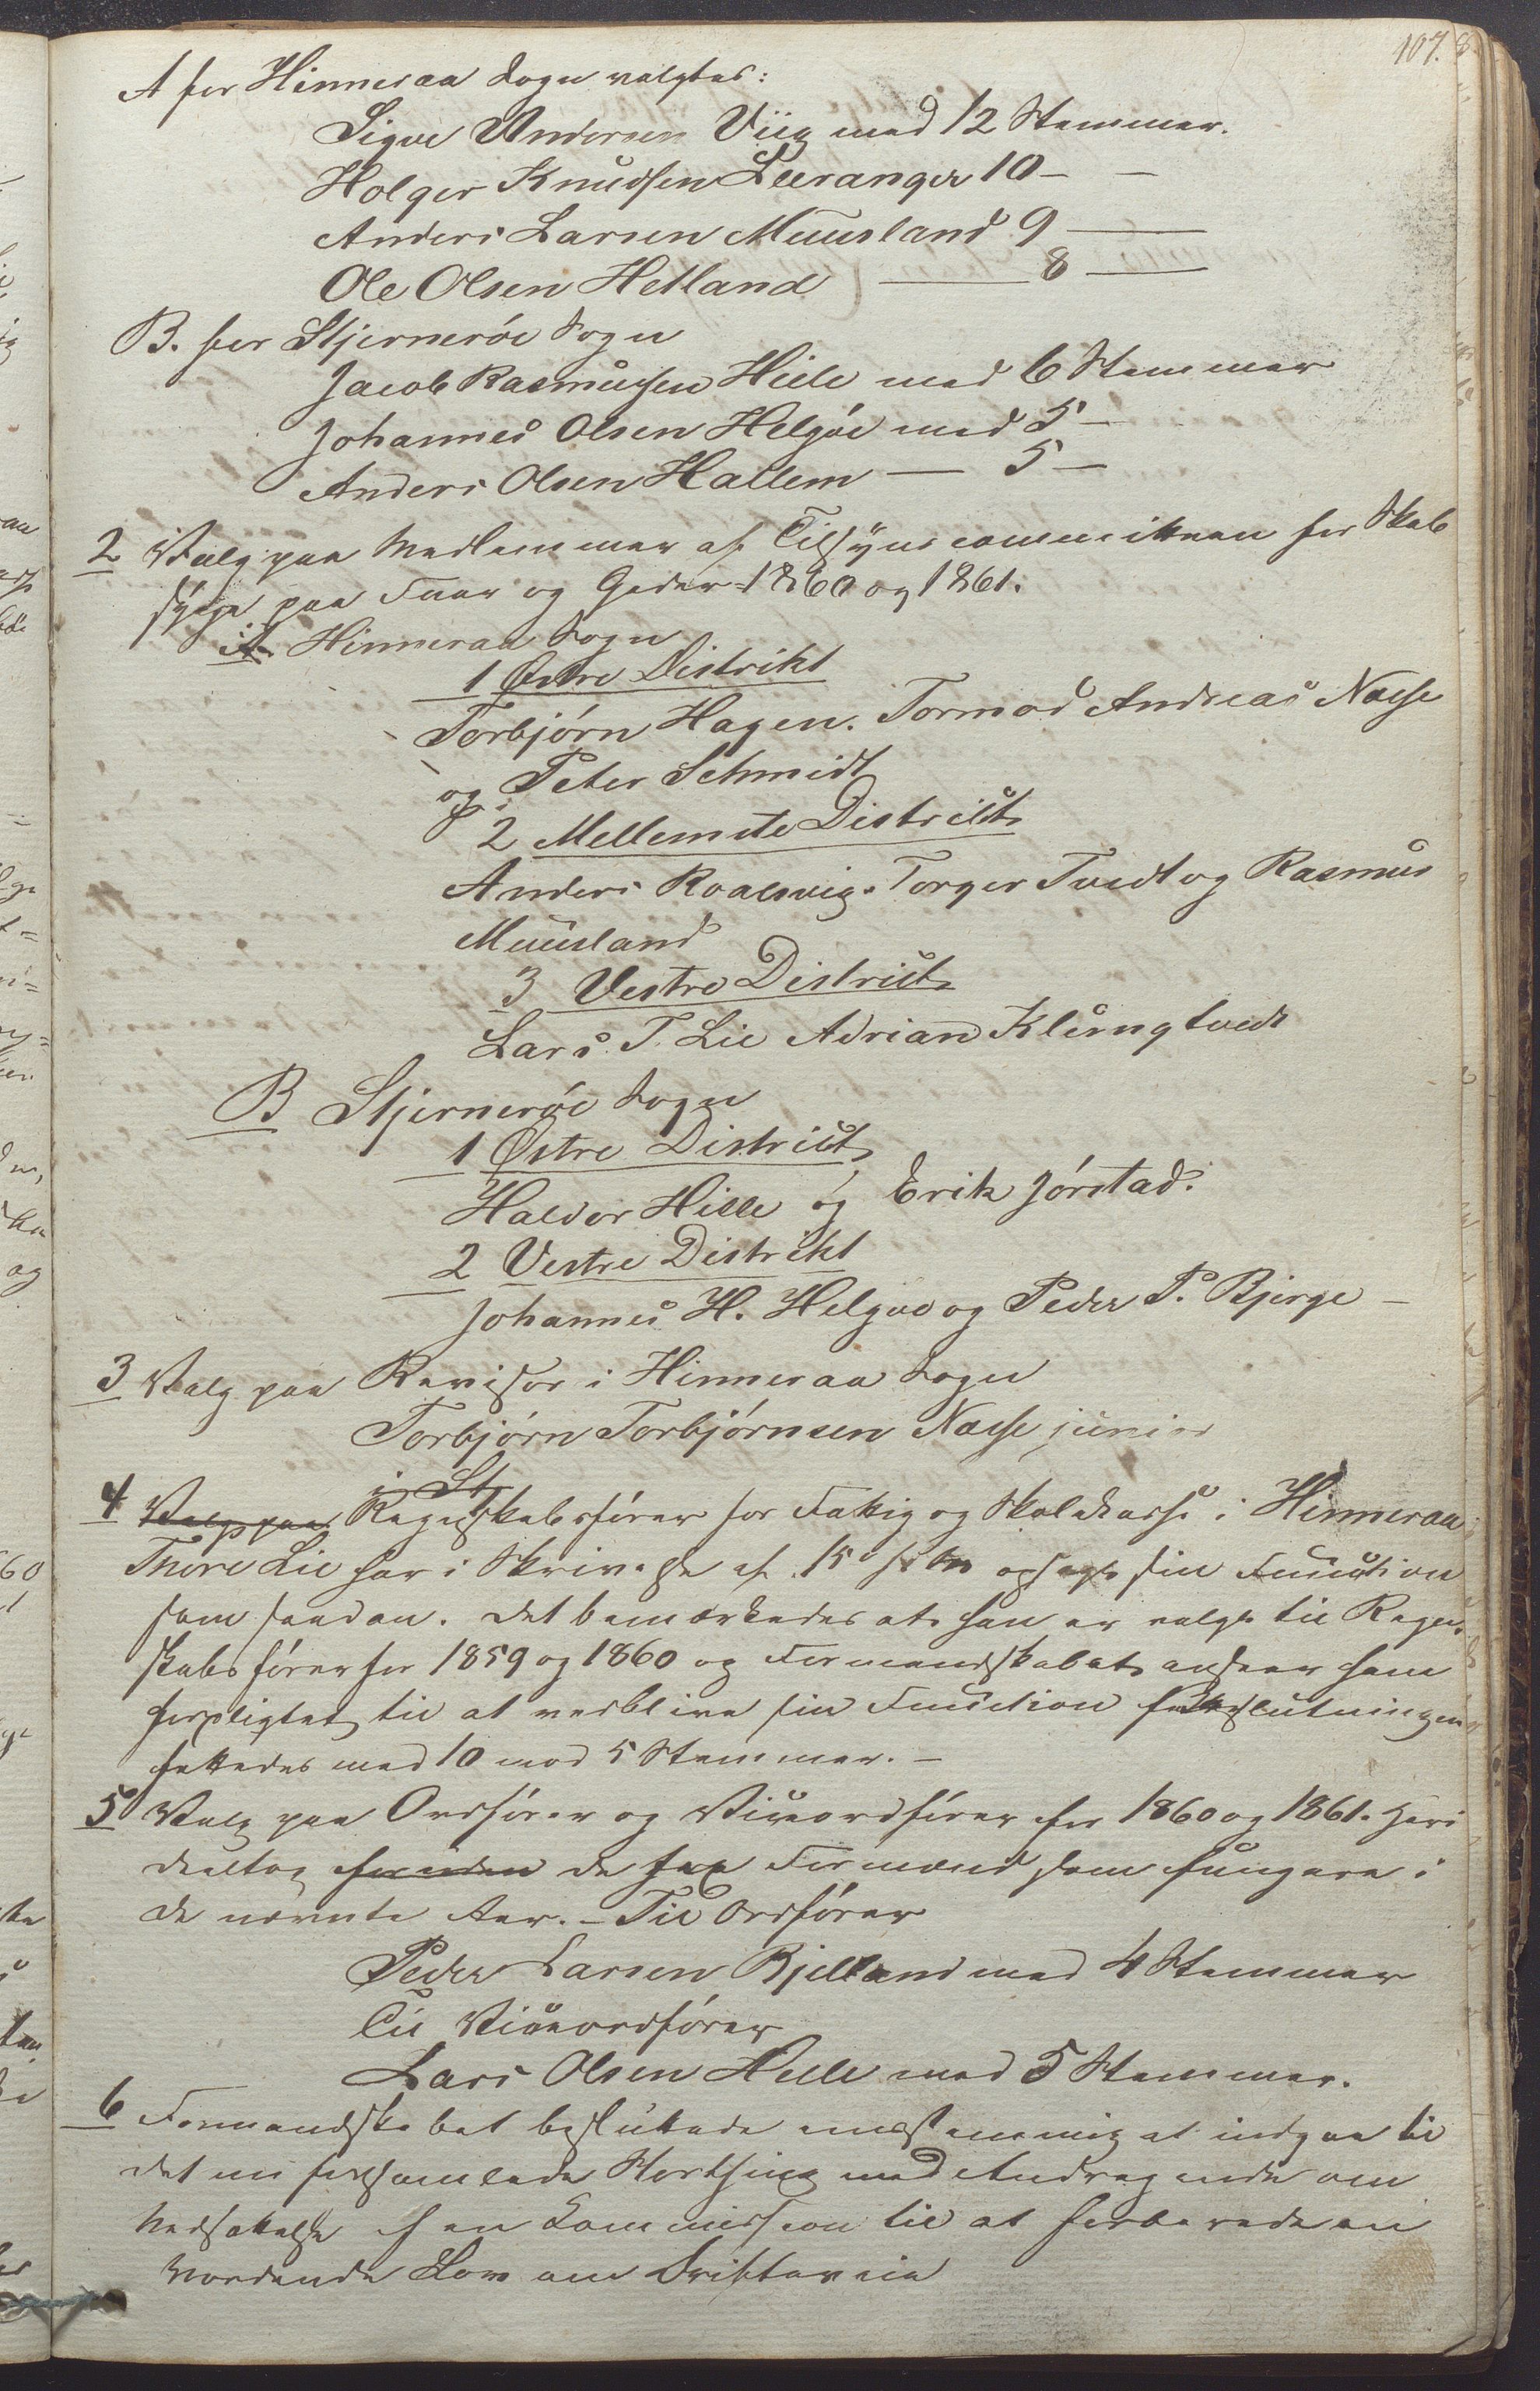 107.
A for Hinneraa Sogn valgtes:
Sigve Andersen Viig med 12 Stemmer.
Holger Knudsen Leeranger 10 – –
Anders Larsen Muusland 9 —
Ole Olsen Hetland — 8 —
B. for Stjernerøe Sogn
Jacob Rasmussen Hille med 6 Stemmer
Johannes Olsen Helgøe med 5 –
Anders Olsen Hallem — 5 –
2 Valg paa Medlemmer af Tilsynscommitteen for Skab
syge paa Faar og Geder 1860 og 1861.
A. Hinneraa Sogn
1 Østre Distrikt
Torbjørn Hagen. Tormod Andreas Næsse
og Peter Schmidt
2 Mellemste District
Anders Roalsvig. Torger Tvedt og Rasmus
Muusland
3 Vestre District
Lars T. Lie Adrian Klungtvedt
B Stjernerøe Sogn
1 Østre District
Haldor Hille og Erik Jørstad.
2 Vestre Distrikt
Johannes H. Helgøe og Peder P. Bjerge –
3 Valg paa Revisor i Hinneraa Sogn
Torbjørn Torbjørnsen Næsse junior
i St
4 Valg paa Regnskabsfører for Fattig og Skolekasse i Hinneraa
Thore Lie har i Skrivelse af 15 opsagt sin Function
som saadan. Det bemærkedes at han er valgt til Regn-
skabsfører for 1859 og 1860 og Formandskabet anseer ham
forpligtet til at vedblive sin Function Beslutningen
fattedes med 10 mod 5 Stemmer. –
5 Valg paa Ordfører og Viceordfører for 1860 og 1861. Heri
deeltog foruden de sex Formænd som fungere i
de nævnte Aar. – Til Ordfører
Peder Larsen Bjelland med 4 Stemmer
Til Viceordfører
Lars Olsen Helle med 5 Stemmer.
6 Formandskabet besluttede eenstemmig at indgaae til
det nu forsamlede Storthing med Andragende om
Nedsættelse af en Commission til at forberede en
vordende Lov om Drifteveie